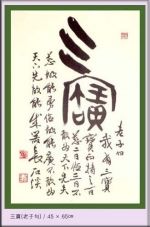 三寶
老子句
我有三寶
寶而持之一曰
慈二曰儉三曰不
敢為天下先夫
慈故能勇儉故能廣不敢為
天下先故能成器長
三寶(老子句) / 45 × 60cm